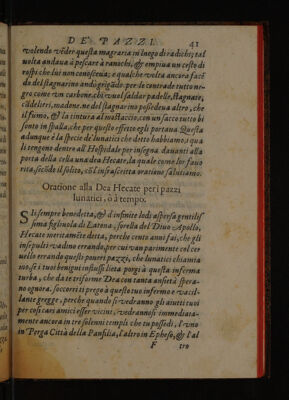 DE PAZZI. 41
volendo vẽder questa magraria in luogo di radichi; tal
volta andaua à pescare à ranochi, & empiua un cesto di
rospi che lui non conosceua; e qualche volta ancora facẽ
do del stagnarino andò gridãdo per le contrade tutto ne-
gro come vn carbone. chi vuol saldar padelle, stagnate,
cãdelieri, ma done. ne del stagnarino possedeua altro, che
il fumo, & la tintura al mostaccio, con un sacco tutto bi
sonto in spalla: che per questo effetto egli portaua. Questa
adunque è la specie de lunatici che detto habbiamo; qua
li tengono dentro all'Hospidale per insegna dauanti alla
porta della cella una dea Hecate, la quale come lor fauo
rita, secõdo il solito, cõ l'infrascritta oratione salutiamo.
Oratione alla Dea Hecate per i pazzi
lunatici, ò à tempo.
SIi sempre benedetta, & d'infinite lodi aspersa gentilis
sima figliuola di Latona, sorella del Diuo Apollo,
Hecate meritamẽte detta, perche cento anni fai, che gli
insepulti vadino errando, per cui van parimente col cer
uello errando questi poueri pazzi, che lunatici chiamia
mo, se i tuoi benigni influssi lieta porgi à questa inferma
turba, che da te triforme Dea con tanta ansietà spera-
no ognora. soccorri ti prego à questo tuo infermo e vacil-
lante gregge, perche quando si vedranno gli aiutti tuoi
per cosi cari amici esser vicini, vedrannosi immediata-
mente ancora in tre solenni tempii che tu possedi, l'vno
in Perga Città della Panfilia, l'altro in Epheso, & l'al
F tro